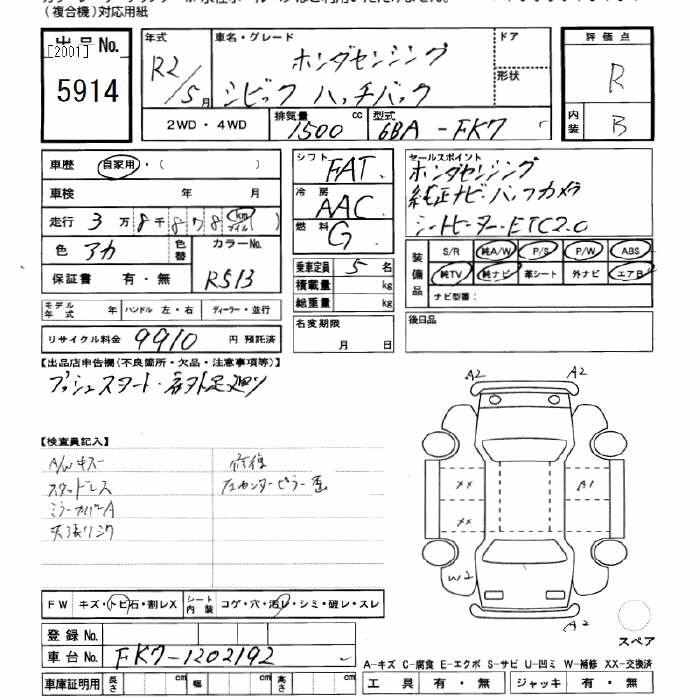 （複合機）対応用紙
出品No.
[2001]
5914
年式
R2/5月
車名・グレード
ホンダセンシング
シビック ハッチバック
ドア
形状
2WD・4WD
排気量
1500 cc
型式
6BA-FK7
評価点
R
内装
B
車歴 自家用・（ ）
車検 年 月
走行 3万8千878 km マイル
色 アカ
色替
カラーNo.
R513
保証書 有・無
モデル年式 年 ハンドル 左・右 ディーラー・並行
リサイクル料金 9910 円 預託済
シフト FAT
冷房 AAC
燃料 G
乗車定員 5 名
積載量 kg
総重量 kg
名変期限
月 日
セールスポイント
ホンダセンシング
純正ナビ・バックカメラ
シートヒーター・ETC2.0
装備品
S/R 純A/W P/S P/W ABS
純TV 純ナビ 革シート 外ナビ エアB
ナビ型番：
後日品
【出品店申告欄（不良箇所・欠品・注意事項等）】
プッシュスタート・右フト足廻り
【検査員記入】
A/Wキズ
スタッドレス
ミラーカバーA
天張リシク
修復
左センターピラー歪
A2
A2
XX
A1
XX
W2
A2
スペア
FW キズ・トビ石・割レX
シート内装 コゲ・穴・汚レ・シミ・破レ・スレ
登録No.
車台No. FK7-1202192
車庫証明用 長さ 幅 高さ
A-キズ C-腐食 E-エクボ S-サビ U-凹ミ W-補修 XX-交換済
工具 有・無 ジャッキ 有・無